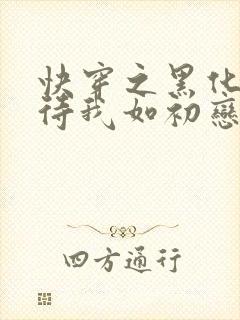 快穿之黑化
待我如初戀
四方通行